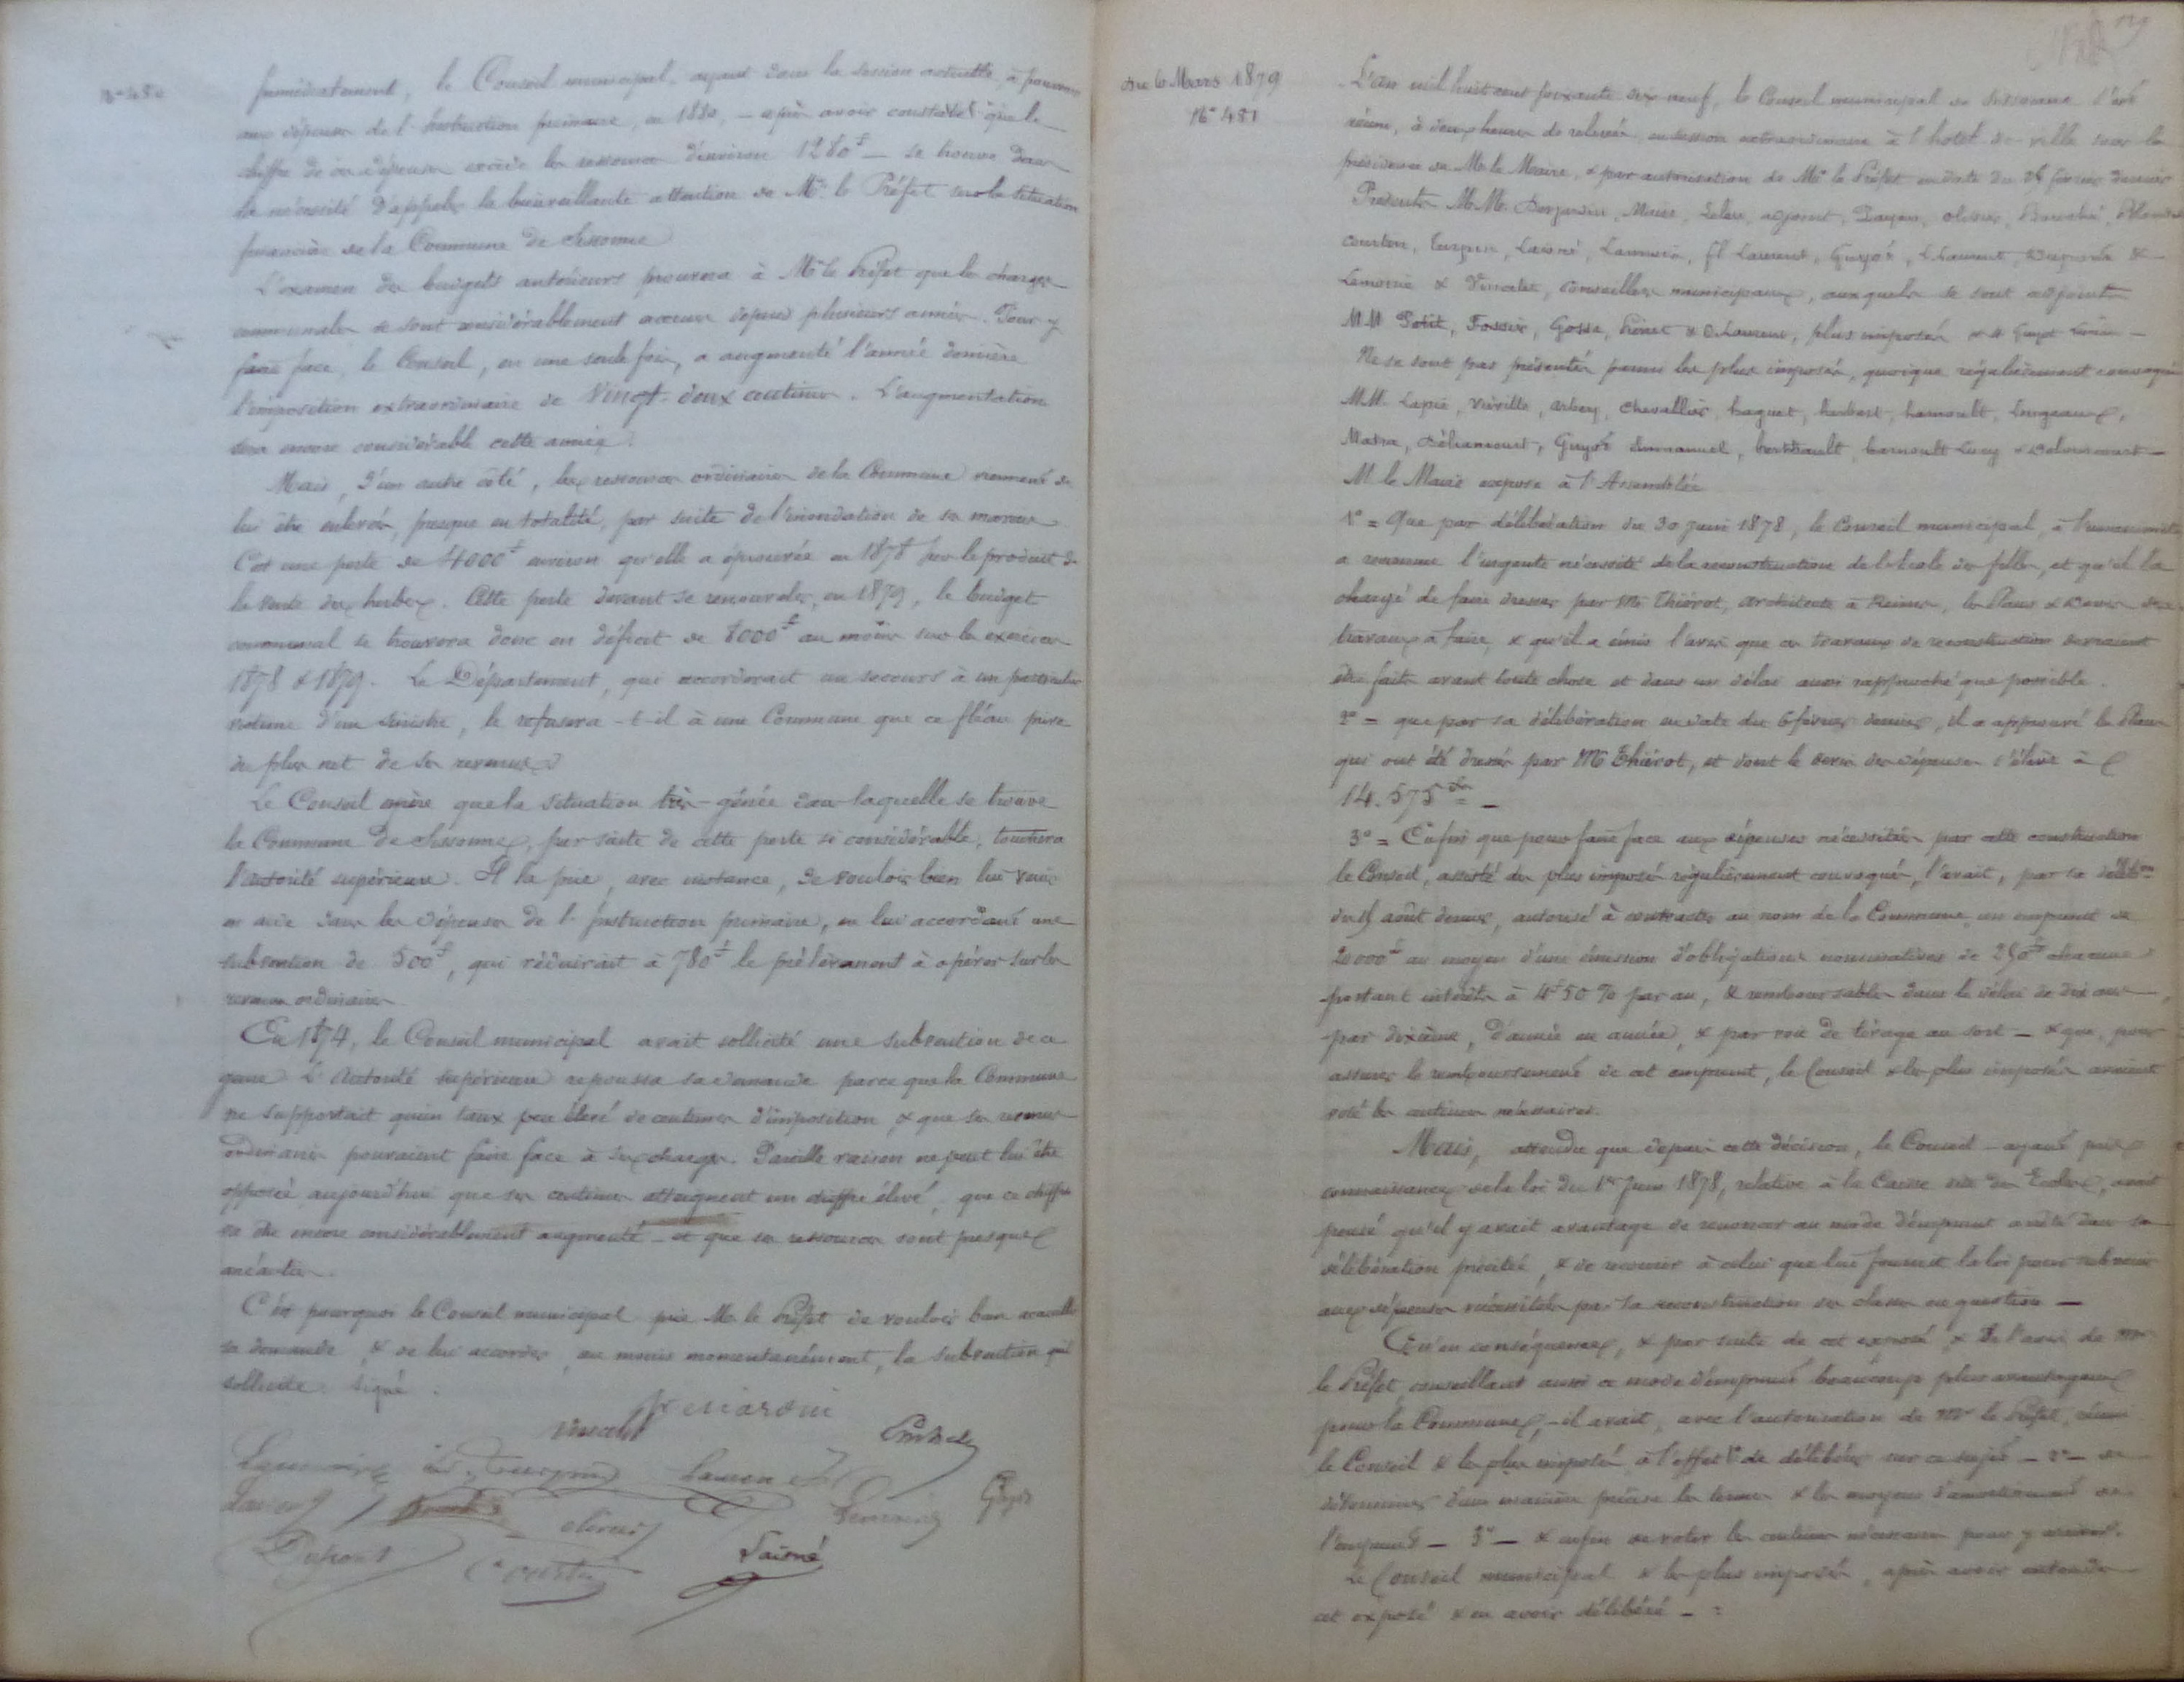 N° 480
Immédiatement, le Conseil municipal, ayant dans la session actuelle, à pourvoir
aux dépenses de l'Instruction primaire, en 1880, — après avoir constaté que le
chiffre de ces dépenses excède les ressources d'environ 1280f — se trouve dans
la nécessité d'appeler la bienveillante attention de Mr. le Préfet sur la situation
financière de la Commune de Sissonne
L'examen des budgets antérieurs prouvera à Mr le Préfet que les charges
communales se sont considérablement accrues depuis plusieurs années. Pour y
faire face, le Conseil, en une seule fois, a augmenté l'année dernière
l'imposition extraordinaire de Vingt-deux centimes. L'augmentation
sera encore considérable cette année.
Mais, d'un autre côté, les ressources ordinaires de la Commune viennent de
lui être enlevées, presque en totalité, par suite de l'inondation de ses marais
C'est une perte de 4000f environ qu'elle a éprouvée en 1878 sur le produit de
la vente des herbes. Cette perte devant se renouveler, en 1879, le budget
communal se trouvera donc en déficit de 8000f au moins sur les exercices
1878 & 1879. Le Département, qui accorderait un secours à un particulier
victime d'un sinistre, le refusera-t-il à une Commune que ce fléau prive
du plus net de ses revenus
Le Conseil espère que la situation très-gênée dans laquelle se trouve
la Commune de Sissonne, par suite de cette perte si considérable, touchera
l'autorité supérieure. Il la prie, avec instance, de vouloir bien lui venir
en aide dans les dépenses de l'Instruction primaire, en lui accordant une
subvention de 500f, qui réduirait à 780f le prélèvement à opérer sur les
revenus ordinaires.
En 1874, le Conseil municipal avait sollicité une subvention de ce
genre L'Autorité supérieure repoussa sa demande parce que la Commune
ne supportait qu'un taux peu élevé de centimes d'imposition, & que ses revenus
ordinaires pouvaient faire face à ses charges. Pareille raison ne peut lui être
opposée aujourd'hui que ses centimes atteignent un chiffre élevé, que ce chiffre
va être encore considérablement augmenté — et que ses ressources sont presque
anéanties.
C'est pourquoi le Conseil municipal prie Mr le Préfet de vouloir bien accueillir
sa demande, & de lui accorder, au moins momentanément, la subvention qu'il
sollicite. Signé.
Laurent
Guyot
Olivier
Dupont
Courtin
Laisné
du 6 Mars 1879
N° 481
L'an mil huit cent soixante dix neuf, le Conseil municipal de Sissonne s'est
réuni, à deux heures de relevée, en session extraordinaire à l'hôtel de ville sous la
présidence de Mr le Maire, & par autorisation de Mr le Préfet en date du février dernier
Présents M.M. Desjardin, Maire, Leleu, adjoint, Payen, Olivier,
Courtin, Turpin, Laisné, Lemoine, fl Laurent, Guyot, L. Laurent, Duponts &
Lemoine & conseillers municipaux, auxquels se sont adjoints
M.M Petit, Fossier, Gosse, & D. Laurent, plus imposés
Ne se sont pas présentés parmi les plus imposés, quoique régulièrement convoqués
M.M. Lapie, Viéville, Arbey, Chevallier, huguet, herbert, harnoult,
Guyot Emmanuel, harnoult
M le Maire expose à l'Assemblée
1° = Que par délibération du 30 juin 1878, le Conseil municipal, à l'unanimité
a reconnu l'urgente nécessité de la reconstruction de l'école des filles, et qu'il l'a
chargé de faire dresser par Mr Thiérot, architecte à Reims, les Plans & Devis des
travaux à faire, & qu'il a émis l'avis que ces travaux de reconstruction devraient
être faits avant toute chose et dans un délai aussi rapproché que possible.
2° = que par sa délibération en date du 6 février dernier, il a approuvé les Plans
qui ont été dressés par Mr Thiérot, et dont le devis des dépenses s'élève à
14.575 —
3° = Enfin que pour faire face aux dépenses nécessitées par cette construction
le Conseil, assisté des plus imposés régulièrement convoqués, l'avait, par sa délibon
du août dernier, autorisé à contracter au nom de la Commune un emprunt de
20000f au moyen d'une émission d'obligations nominatives de 250f chacune
portant intérêts à 4f50 % par an, & remboursables dans le délai de dix ans
par dixième, d'année en année, & par voie de tirage au sort — & que, pour
assurer le remboursement de cet emprunt, le Conseil & les plus imposés avaient
voté les centimes nécessaires.
Mais, attendu que depuis cette décision, le Conseil — ayant pris
connaissance de la loi du 1er Juin 1878, relative à la Caisse dite des Ecoles, avait
pensé qu'il y avait avantage de renoncer au mode d'emprunt arrêté dans sa
délibération précitée, & de recourir à celui que lui fournit la loi pour subvenir
aux dépenses nécessitées par la reconstruction des classes en question —
Qu'en conséquence, & par suite de cet exposé, & de l'avis de Mr
le Préfet conseillant aussi ce mode d'emprunt beaucoup plus avantageux
pour la Commune, — il avait, avec l'autorisation de Mr le Préfet, réuni
le Conseil & les plus imposés à l'effet 1° de délibérer sur ce sujet — 2° — de
déterminer d'une manière précise les termes & les moyens d'amortissement de
l'emprunt — 3° — & enfin de voter les centimes nécessaires pour y arriver.
Le Conseil municipal & les plus imposés, après avoir entendu
cet exposé & en avoir délibéré — =